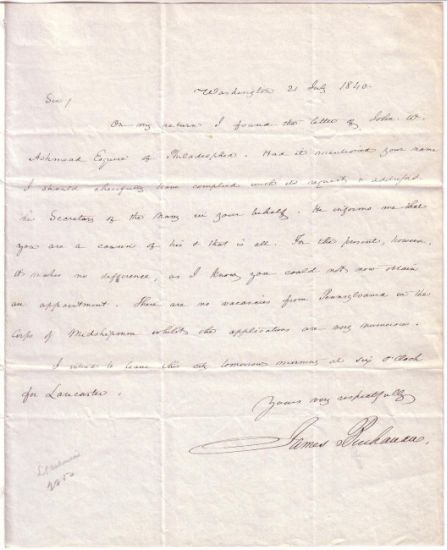 Washington 21 July 1840.
Sir/
On my return I found the letter of John W.
Ashmead Esquire of Philadelphia. Had it mentioned your name
I should cheerfully have complied with its request & addressed
the Secretary of the Navy in your behalf. He informs me that
you are a cousin of his & that is all. For the present, however,
it makes no difference, as I know you could not now obtain
an appointment. There are no vacancies from Pennsylvania in the
Corps of Midshipmen whilst the applications are very numerous.
I intend to leave this city tomorrow morning at six o'clock
for Lancaster.
Yours very respectfully
James Buchanan.